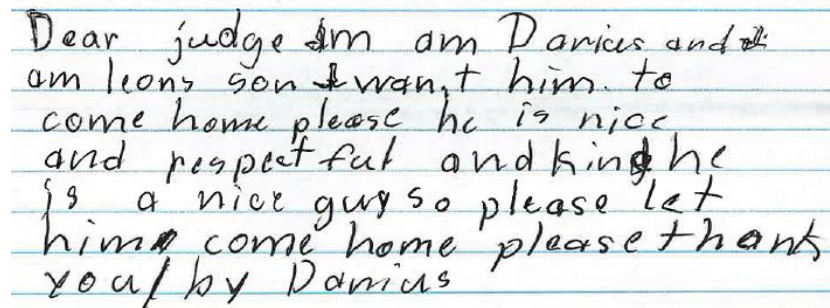 Dear judge Im am Darius and I
am leons son I wan,t him. to
come home please he is nice
and respectful and kind he
is a nice guy so please let
him come home please thank
you/ by Darius